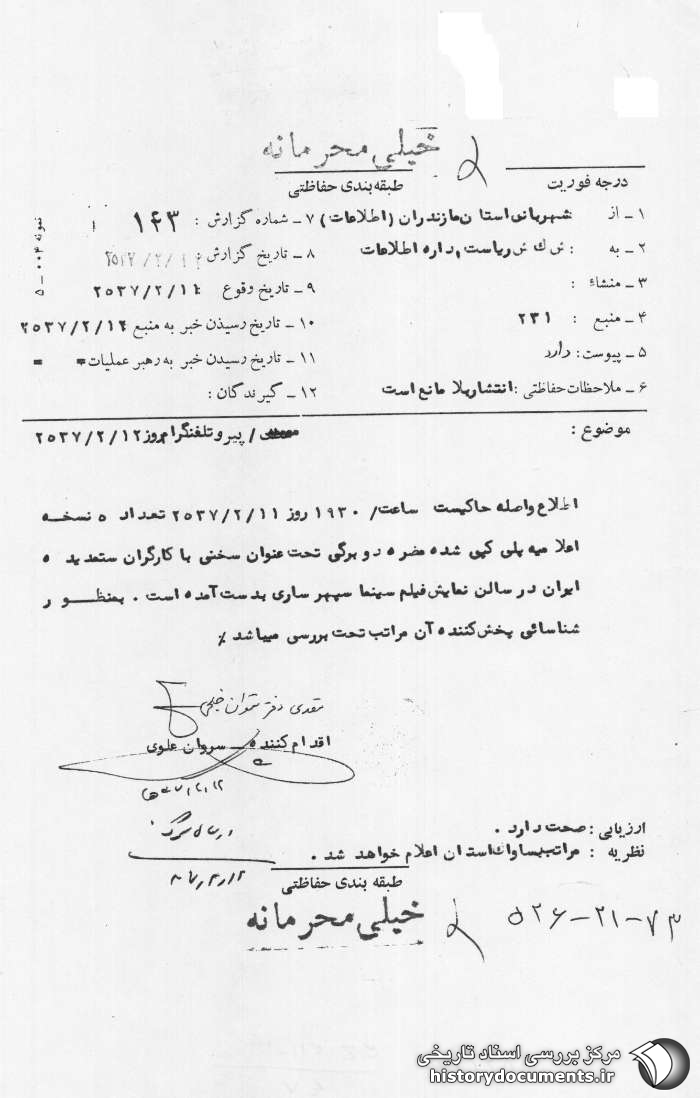 خیلی محرمانه
درجه فوریت
طبقه‌بندی حفاظتی
۱ ـ از شهربانی استان مازندران (اطلاعات)
۷ ـ شماره گزارش : ۱۴۳
۲ ـ به : ش ک ش ریاست اداره اطلاعات
۸ ـ تاریخ گزارش :
۳ ـ منشاء :
۹ ـ تاریخ وقوع ۲۵۳۷/۲/۱۱
۴ ـ منبع : ۲۳۱
۱۰ ـ تاریخ رسیدن خبر به منبع ۲۵۳۷/۲/۱۲
۵ ـ پیوست : دارد
۱۱ ـ تاریخ رسیدن خبر به رهبر عملیات = =
۶ ـ ملاحظات حفاظتی : انتشار بلا مانع است
۱۲ ـ گیرندگان :
نمونه ۰۰۴ ـ ۵
موضوع : / پیرو تلفنگرام روز ۲۵۳۷/۲/۱۲
اطلاع واصله حاکیست ساعت/ ۱۹۳۰ روز ۲۵۳۷/۲/۱۱ تعداد ۵ نسخه
اعلامیه پلی کپی شده مضره دو برگی تحت عنوان سخنی با کارگران ستمدیده
ایران در سالن نمایش فیلم سینما سپهر ساری بدست آمده است . بمنظور
شناسائی پخش‌کننده آن مراتب تحت بررسی میباشد ٪
اقدام کننده ـ سروان علوی
ارزیابی : صحت دارد .
نظریه : مراتب بساواک استان اعلام خواهد شد .
طبقه بندی حفاظتی
خیلی محرمانه
۵۲۶-۲۱-۷۳
مرکز بررسی اسناد تاریخی
historydocuments.ir